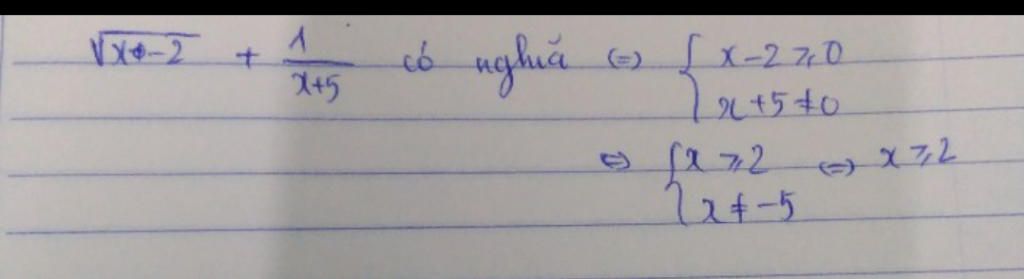 √x-2 + 1/x+5 có nghĩa <=> { x-2 ≥ 0
x+5 ≠ 0
<=> { x ≥ 2 <=> x ≥ 2
x ≠ -5